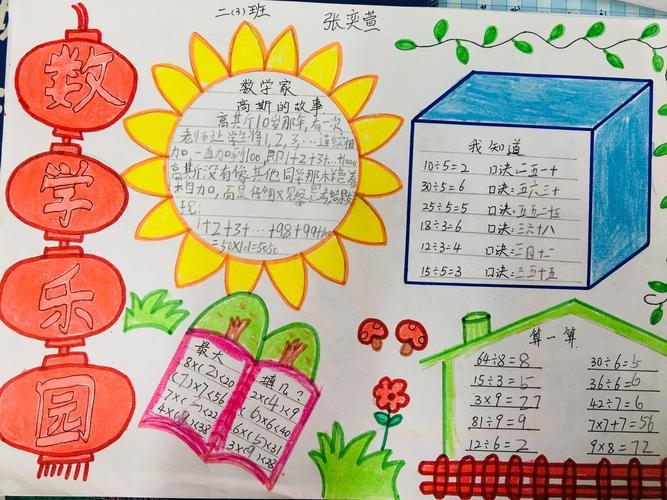 二(3)班
张奕萱
数学乐园
数学家
高斯的故事
高其斤10岁那年,有一次
老师让学生将1,2,3,…连续相
加一直加到100,即1+2+3+…+100
高斯没有像其他同学那样急着
相加,而是仔细观察、思考,
现:
1+2+3+…+98+99+100
=50×101=5050
我知道
10÷5=2 口诀:二五一十
30÷5=6 口诀:五六三十
25÷5=5 口诀:五五二十五
18÷3=6 口诀:三六十八
12÷3=4 口诀:三四十二
15÷5=3 口诀:三五十五
最大
8×(2)<20
(7)×7<56
7×(3)<22
4×(9)<38
填几?
2×(4)<9
(6)×6<40
6×(5)<31
3×(9)<28
算一算
64÷8=8 30÷6=5
15÷3=5 36÷6=6
3×9=27 42÷7=6
81÷9=9 7×7+7=56
12÷6=2 9×8=72